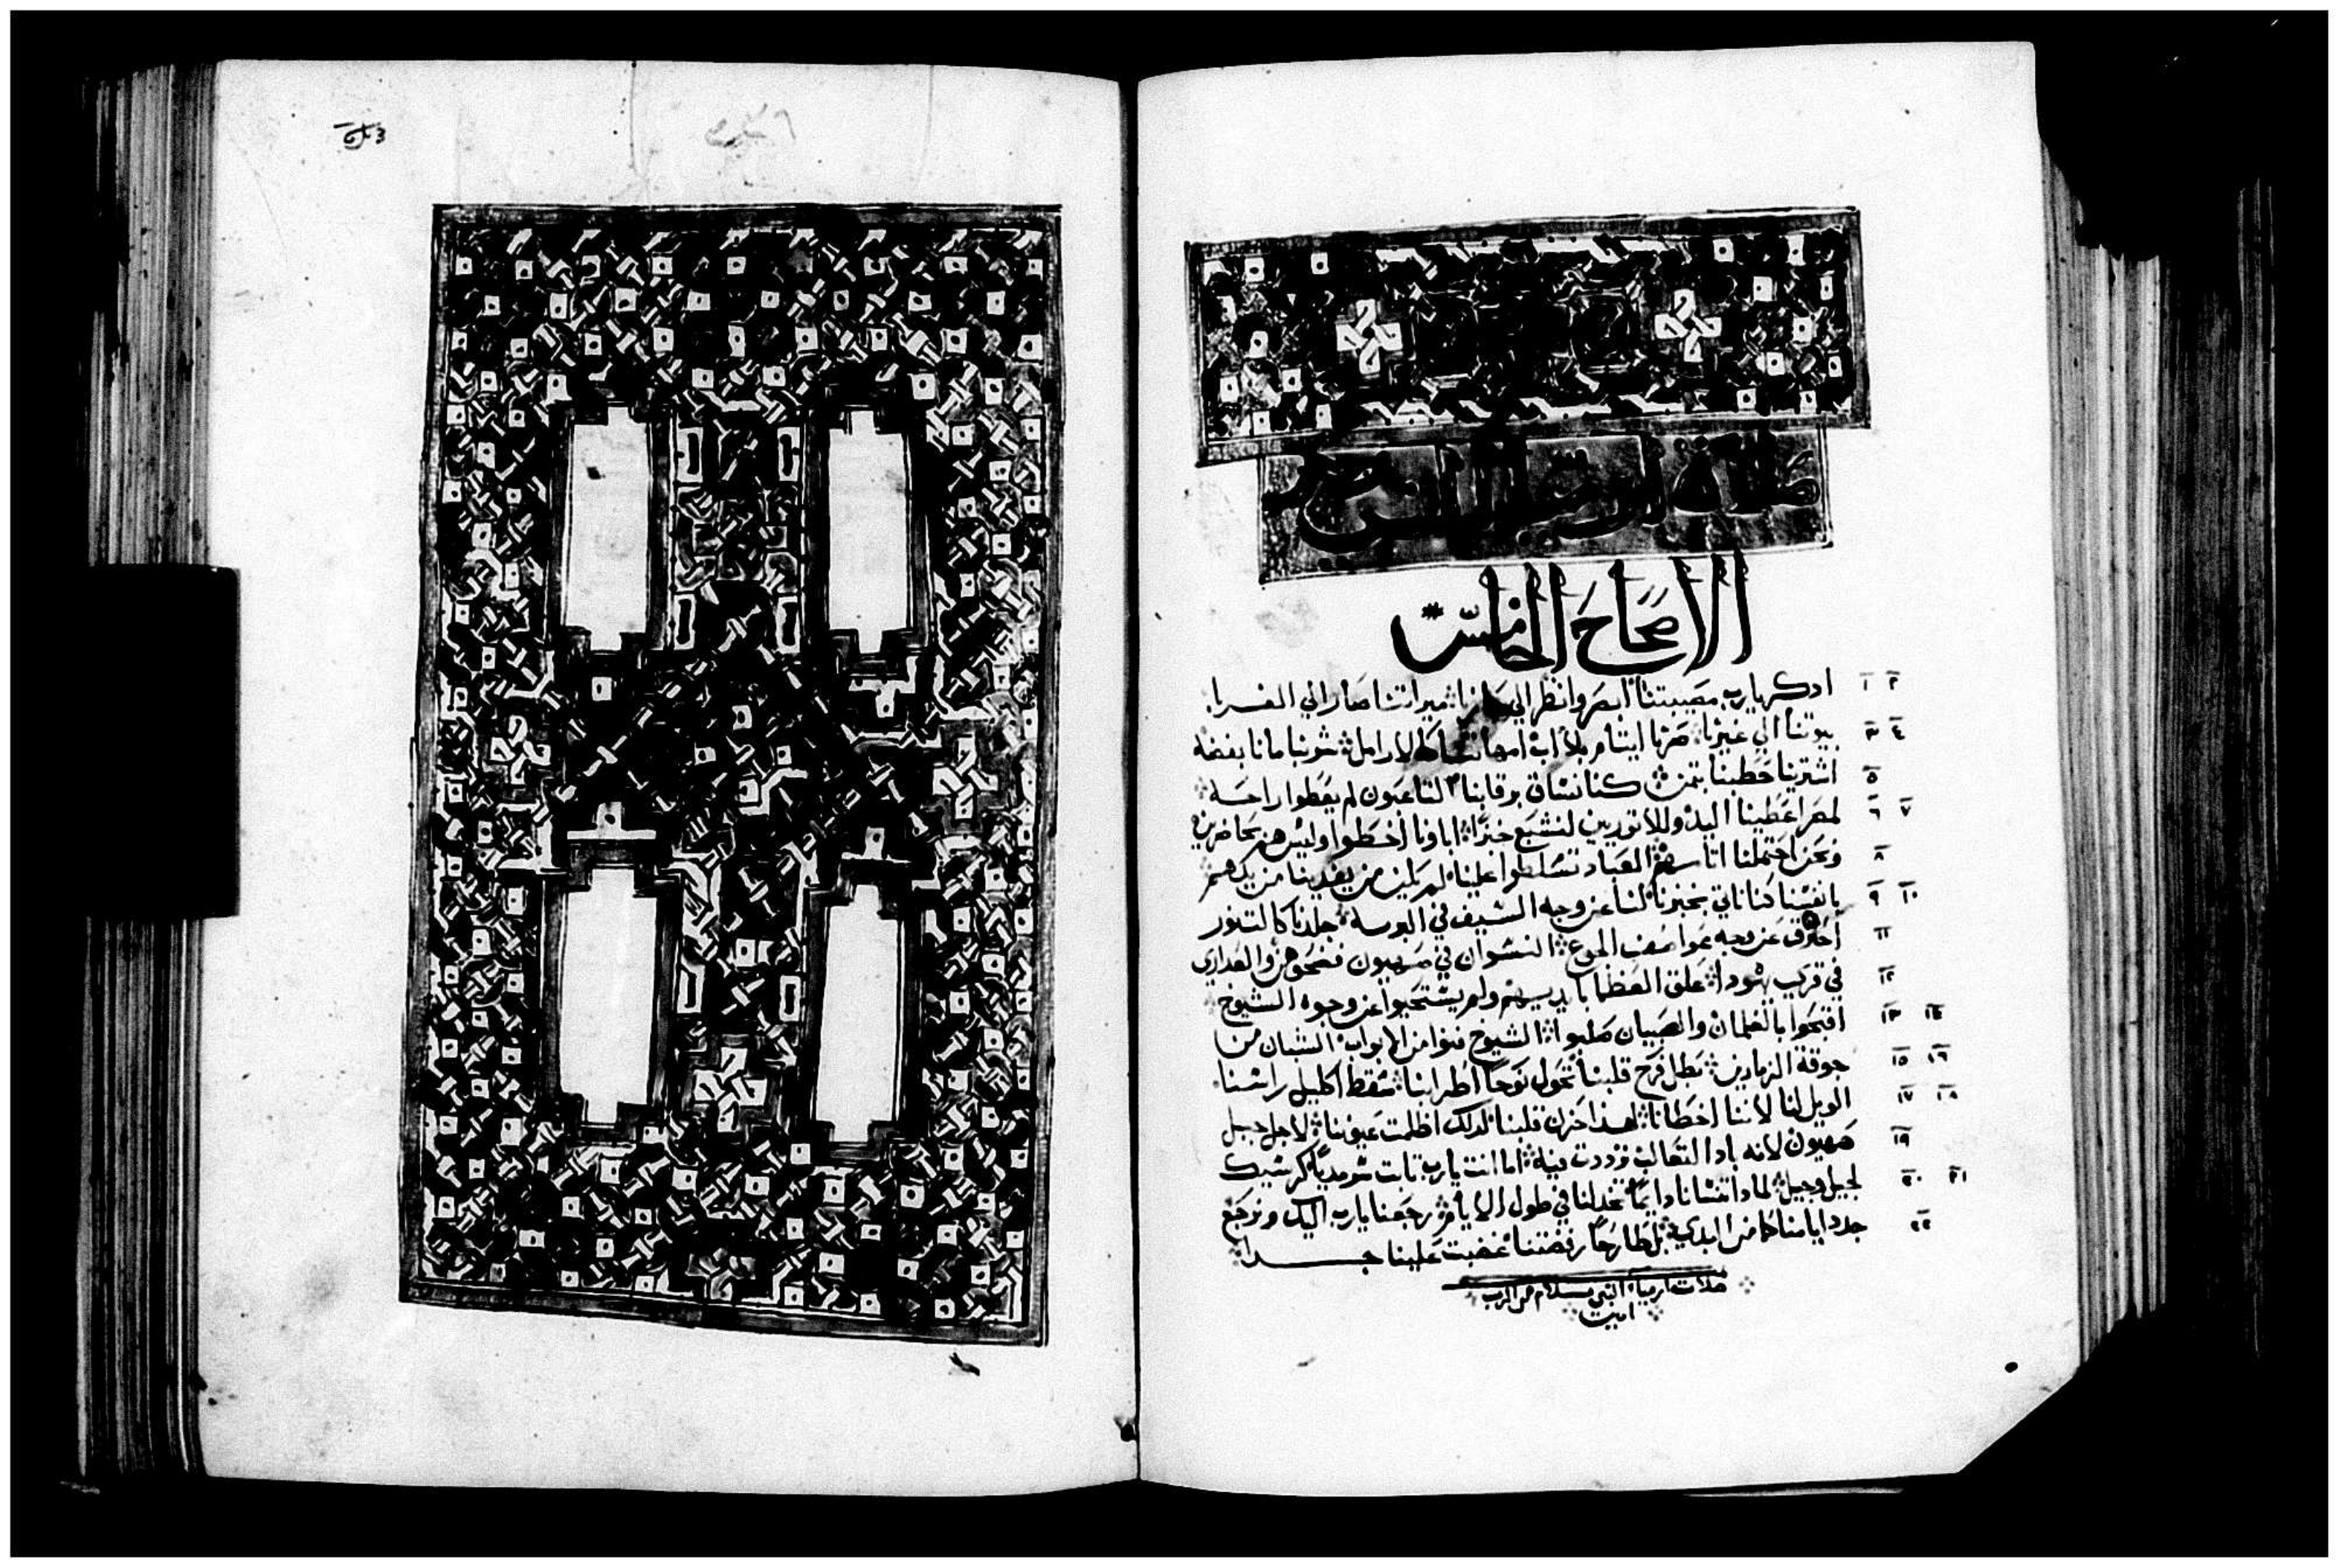 صلاة ارميا النبي
الاصحاح الخامس
ادكر يارب مصيبتنا ابصر وانظر الي عارنا ميراتنا صار الي الغربا
بيوتنا الي غيرنا صرنا ايتام بلا اب امهاتنا كالارامل شربنا مانا بفضه
اشترينا حطبنا بتمن كنا نساق برقابنا التاعبون لم يعطوا راحه
لمصر اعطينا اليد وللاتوريين لنشبع خبزا اباونا اخطوا وليس هم بحاضرين
ونحن احتملنا اتامهم العباد تسلطوا علينا لم يكن من يفدينا من يدهم
بانفسنا كنا ناتي بخبزنا لنا عن وجه السيف في البرية جلدنا كالتنور
احترق عن وجه عواصف الجوع النسوان في صهيون فضحوهن والعداري
في قري يهودا علق العظما بايديهم ولم يستحيوا عن وجوه الشيوخ
افتجوا بالغلمان والصبيان صلبوا الشيوخ فنوا من الابواب الشبان من
جوقة الزمارين بطل فرح قلبنا تحول نوحا اطرابنا سقط اكليل راسنا
الويل لنا لاننا اخطانا لهذا حزن قلبنا لدلك اظلمت عيوننا لاجل جبل
صهيون لانه باد التعالب ترددت فيه اما انت يارب تابت سرمديا كرسيك
لجيل وجيل لمادا تنسانا دايما تخدلنا في طول الايام رجعنا يارب اليك ونرجع
جدد ايامنا كما من البدي بل طارحا رفضتنا غضبت علينا جدا
صلات ارميا النبي بسلام من الرب
امين